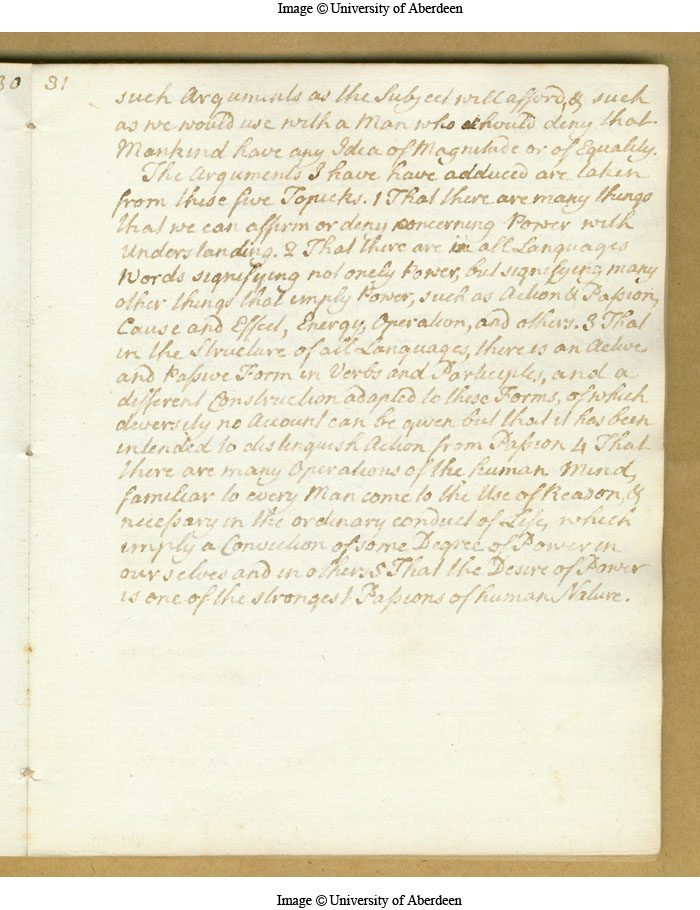 Image © University of Aberdeen
30 31
such Arguments as the Subject will afford, & such
as we would use with a Man who should deny that
Mankind have any Idea of Magnitude or of Equality.
The Arguments I have have adduced are taken
from these five Topicks. 1 That there are many things
that we can affirm or deny concerning Power with
understanding. 2 That there are in all Languages
Words signifying not onely Power, but signifying many
other things that imply Power, such as Action & Passion,
Cause and Effect, Energy, Operation, and others. 3 That
in the Structure of all Languages, there is an Active
and Passive Form in Verbs and Participles, and a
different Construction adapted to these Forms, of which
diversity no Account can be given but that it has been
intended to distinguish Action from Passion 4 That
there are many Operations of the human Mind,
familiar to every Man come to the Use of Reason, &
necessary in the ordinary conduct of Life, which
imply a Conviction of some Degree of Power in
ourselves and in others 5 That the Desire of Power
is one of the strongest Passions of human Nature.
Image © University of Aberdeen